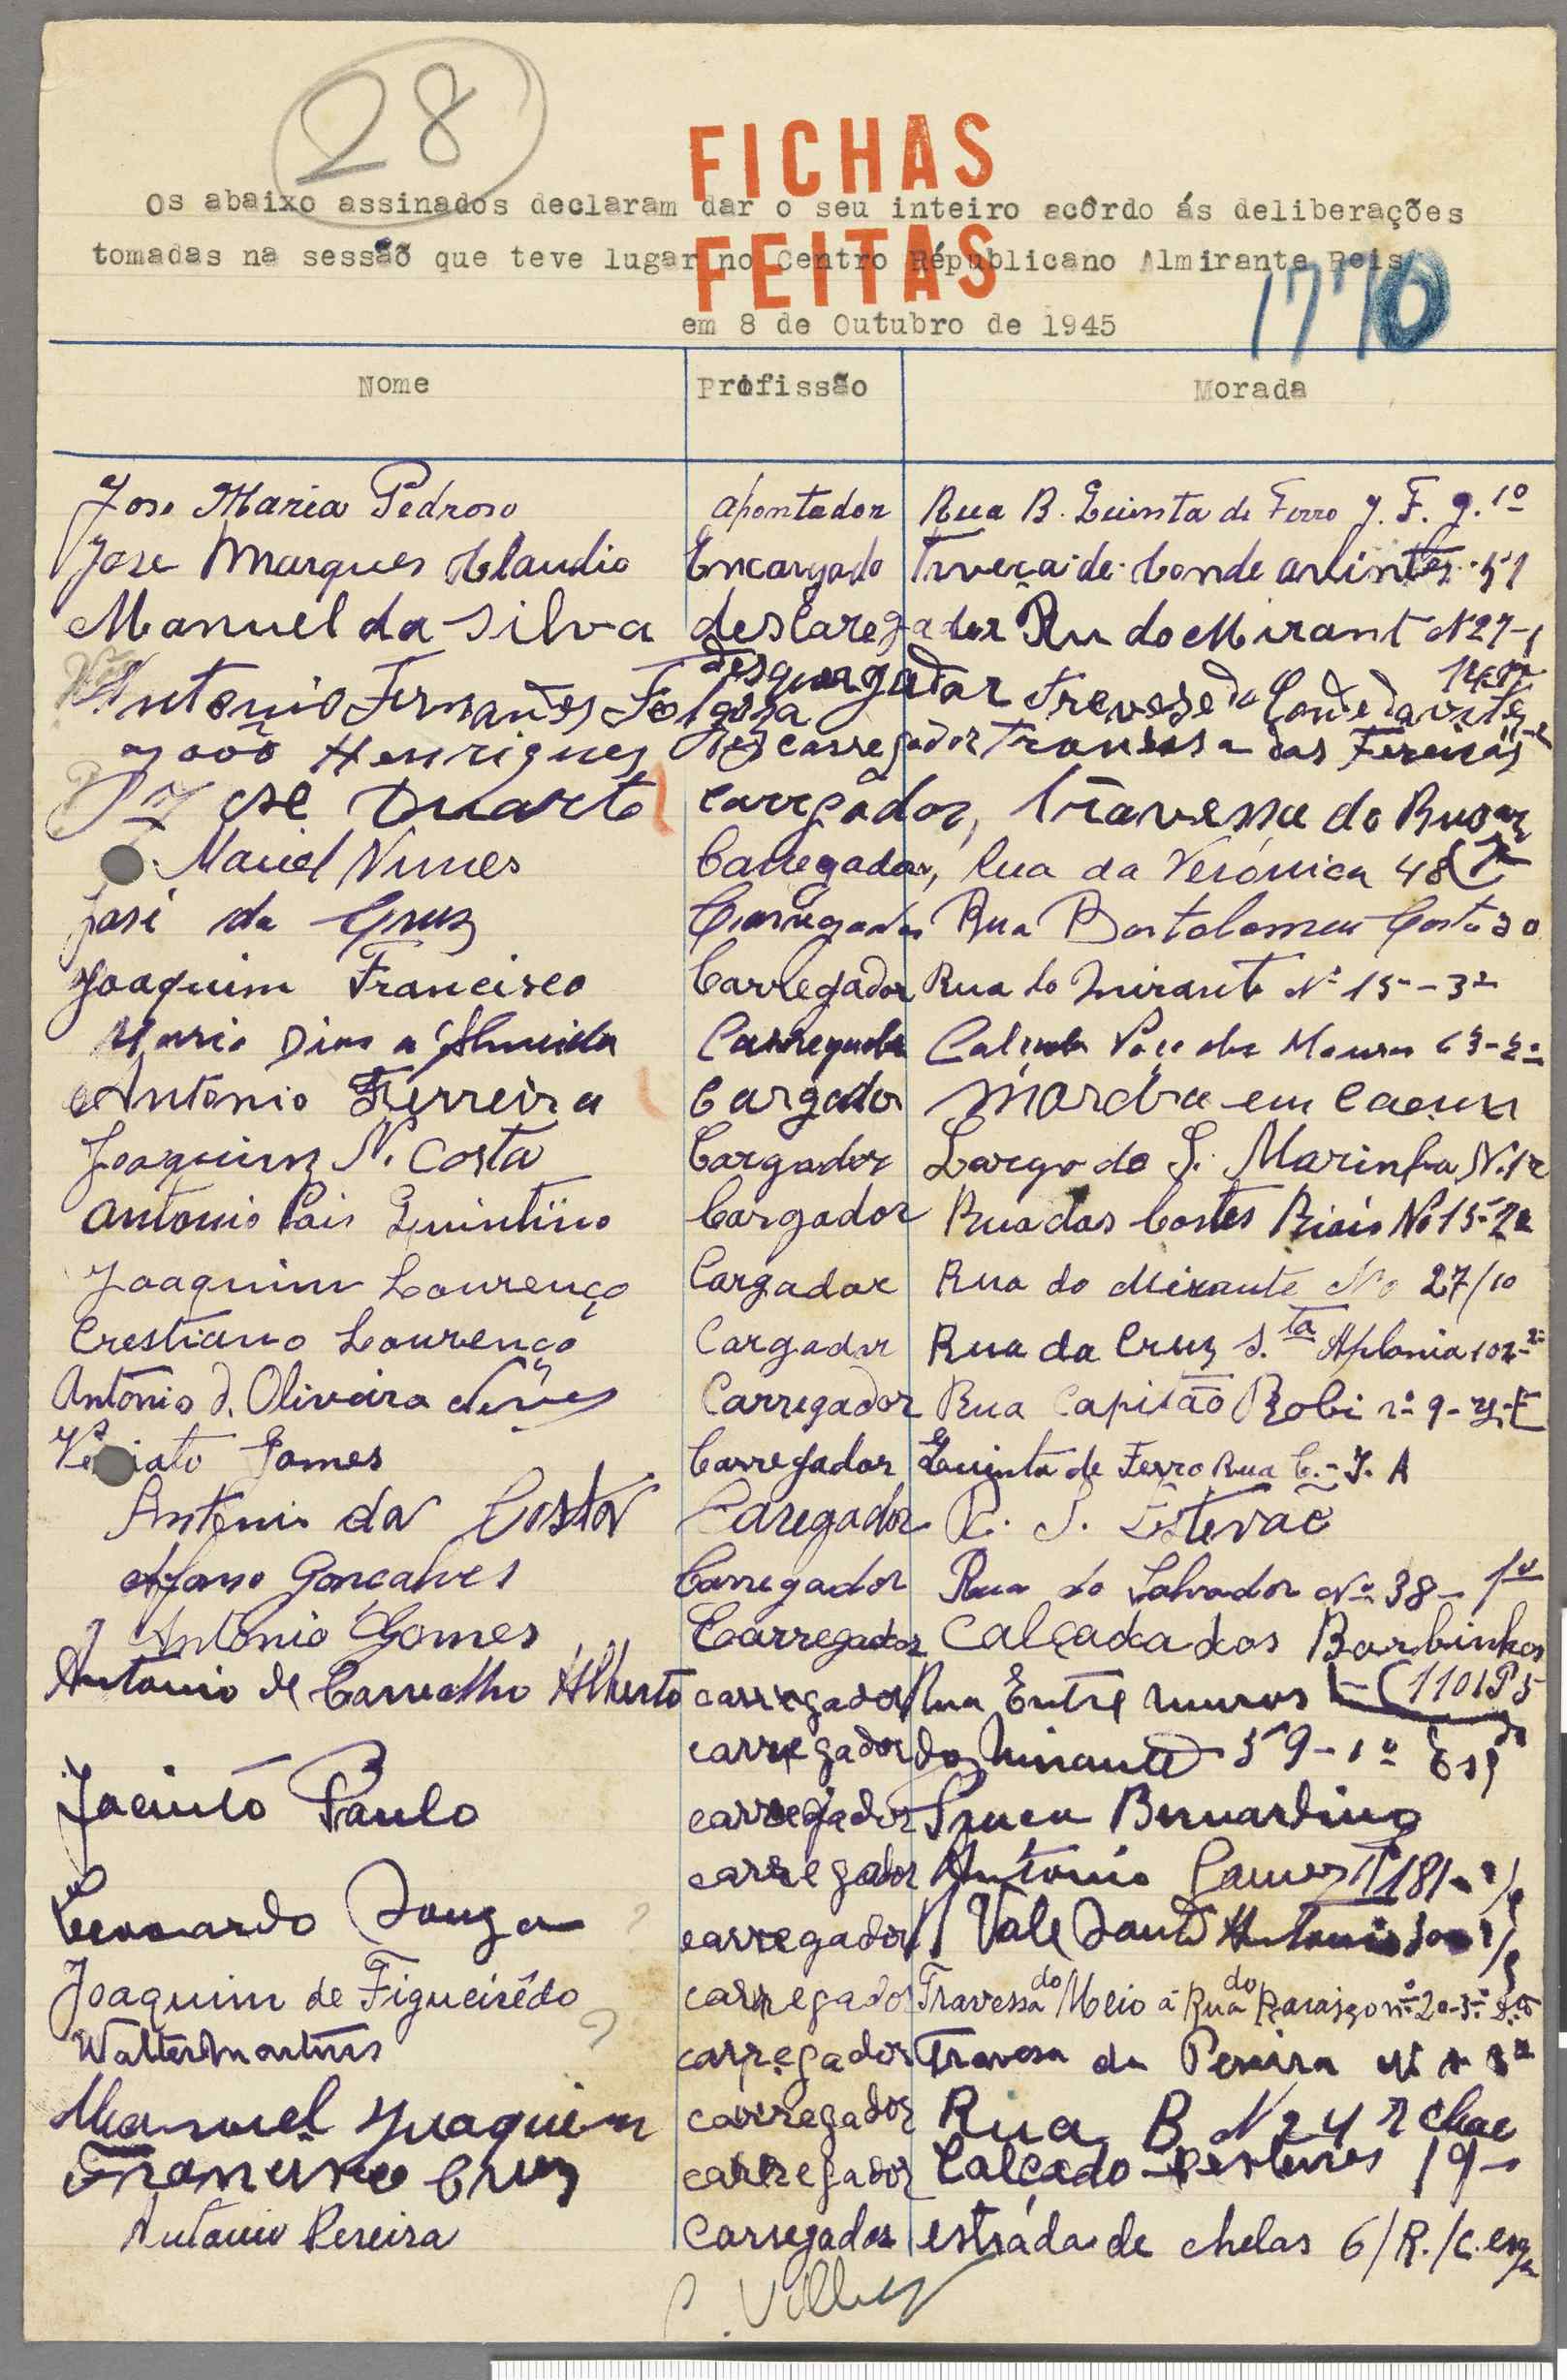 28
FICHAS
Os abaixo assinados declaram dar o seu inteiro acôrdo ás deliberações
tomadas na sessão que teve lugar no Centro Républicano Almirante Reis
FEITAS
em 8 de Outubro de 1945
1770
Nome Profissão Morada
Jose Maria Pedroso apontador Rua B. Quinta de Ferro J. F. g. 1º
Jose Marques Claudio Encargado Traveça de Conde avintes 51
Manuel da Silva descaregador Ru do Mirant N 27-1
Antonio Fernandes Folgosa desquargador Travese da Conde davites
João Henriques Descarregador Travessa das Fereiras
José Duarte carregador, travessa do
Manel Nunes Carregador, Rua da Verónica 48
José da Cruz Carregador Rua Bartolomeu Costa 30
Joaquim Francisco Carregador Rua do Mirante Nº 15-3º
Mario Dias a Almeida Carregador Calçada Poço dos Mouros 63-2º
Antonio Ferreira Cargador
Joaquim N. Costa Cargador Largo de S. Marinha N. 12
Antonio Pais Quintino Cargador Rua das Cortes Nº 15-2º
Joaquim Lourenço Cargador Rua do Mirante No 27/10
Crestiano Lourenço Cargador Rua da Cruz S.ta Aplonia 102-2º
António d. Oliveira Neves Carregador Rua Capitão Robi nº 9-
Gomes Carregador Quinta de Ferro Rua C.-J. A
Antonio da Costa Caregador R. S. Estevão
Afonso Gonçalves Carregador Rua do Salvador Nº 38-1º
Antonio Gomes Carregador Calçada dos Barbinhos
Antonio de Carvalho Alberto carregador Rua Entre muros
carregador do Mirante 59-1º Esq
Jacinto Paulo carregador Bernardino
carregador Antonio Gomes 181
Leonardo Souza carregador Vale Santo Antonio
Joaquim de Figueirêdo carregador Travessa do Meio á Rua do Paraizo nº 20-3º
Walter Martins carregador Travesa da Pereira
Manuel Juaquim carregador Rua B N 24
Francisco Cruz carregador Calçado 19
Antonio Pereira Carregador estráda de chelas 6/R./C. esq